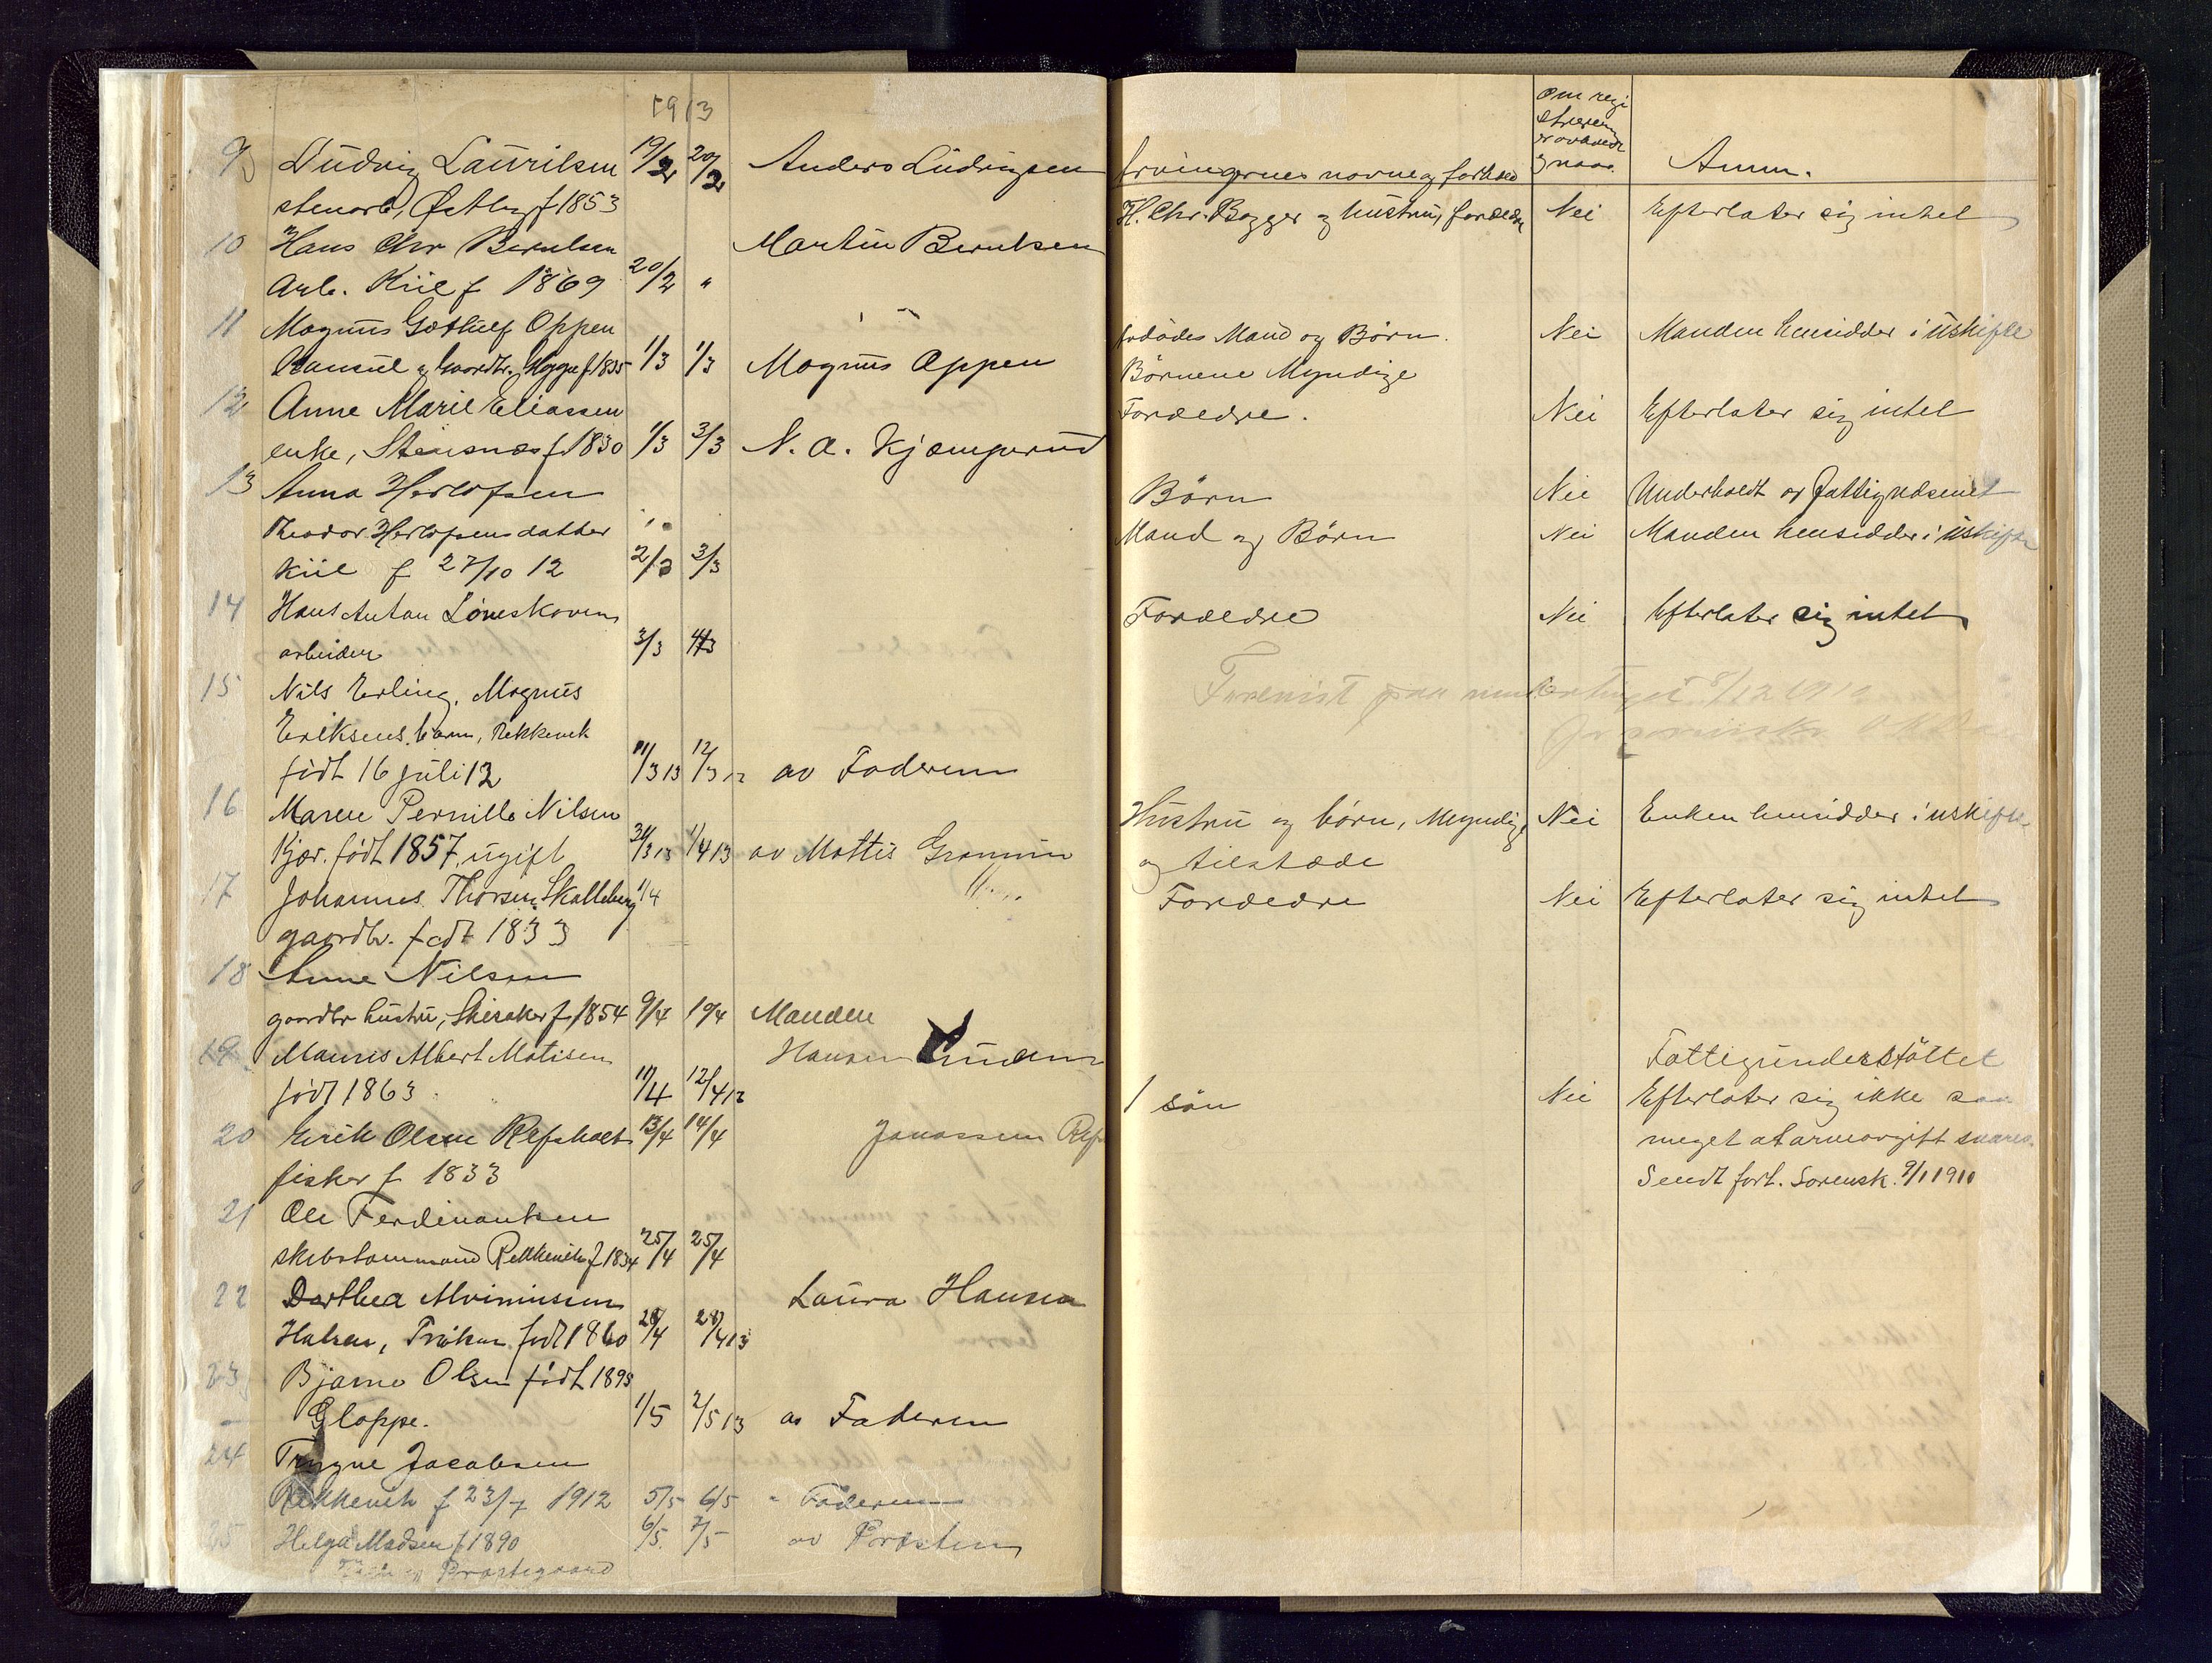 1913
9 Ludvig Lauritsen 19/2 20/2 Anders Ludvigsen
stenarb, Østby f 1853
10 Hans Chr Berntsen Martin Berntsen
Arb. Kiil f 1869 20/2 "
11 Magnus Gotthilf Oppen
Konsul & Hygge f 1835 1/3 1/3 Magnus Oppen
12 Anne Marie Eliassen
enke, Stensnæs f 1830 1/3 3/3 N. A. Kjæmperud
13 Anna Herlofsen
Theodor Herlofsens datter
Kiil f 27/10 12 2/3 3/3
14 Hans Anton Löveskoven
arbeider 3/3 4/3
15 Nils Erling, Magnus
Eriksens barn, Rekkevik
född 16 juli 12 11/3 13 12/3 13 av Faderen
16 Maren Pernille Nilsen
Kjær. født 1857, ugift 31/3 13 1/4 13 av Mattis
17 Johannes Thorsen Skalleberg 1/4
gaardbr. født 1833
18 Anne Nilsen
gaardbr hustru, f 1854 9/4 10/4 Manden
19 Albert Matisen Hansen
född 1863 11/4 12/4 13
20 Erik Olsen Refsholt 13/4 14/4 Jonassen Ref
fisker f 1833
21 Ole Ferdinantsen
skibstømmand Rekkevik f 1834 25/4 25/4
22 Dorthea Laura Hansen
Halsen, født 1860 28/4 13
23 Bjarne Olsen född 1895
Gloppe. 1/5 2/5 13 av Faderen
24 Trygve Jacobsen
Rekkevik f 23/7 1912 5/5 6/5 " Faderen
25 Helga Madsen f 1890 6/5 7/5 av Præsten
Præstegaard
Arvingernes navne og forhold Om regi strering er og naar. Anm.
H. Chr. Bagger og hustru, foreldre Nei Efterlater sig intet
Mand og Børn. Nei Manden hensidder i uskifte
Børnene Myndige
Foreldre. Nei Efterlater sig intet
Børn Nei Underholdt av fattigvæsenet
Mand og Børn Nei Manden hensidder i uskifte
Foreldre Nei Efterlater sig intet
Hustru og børn, Myndige Nei Enken hensidder i uskifte
og tilstæde
Foreldre Nei Efterlater sig intet
Fattigunderstöttet
1 sön Nei Efterlater sig ikke saa
meget at arveavgift svares.
Sendt fort. Sorensk. 9/1 1910